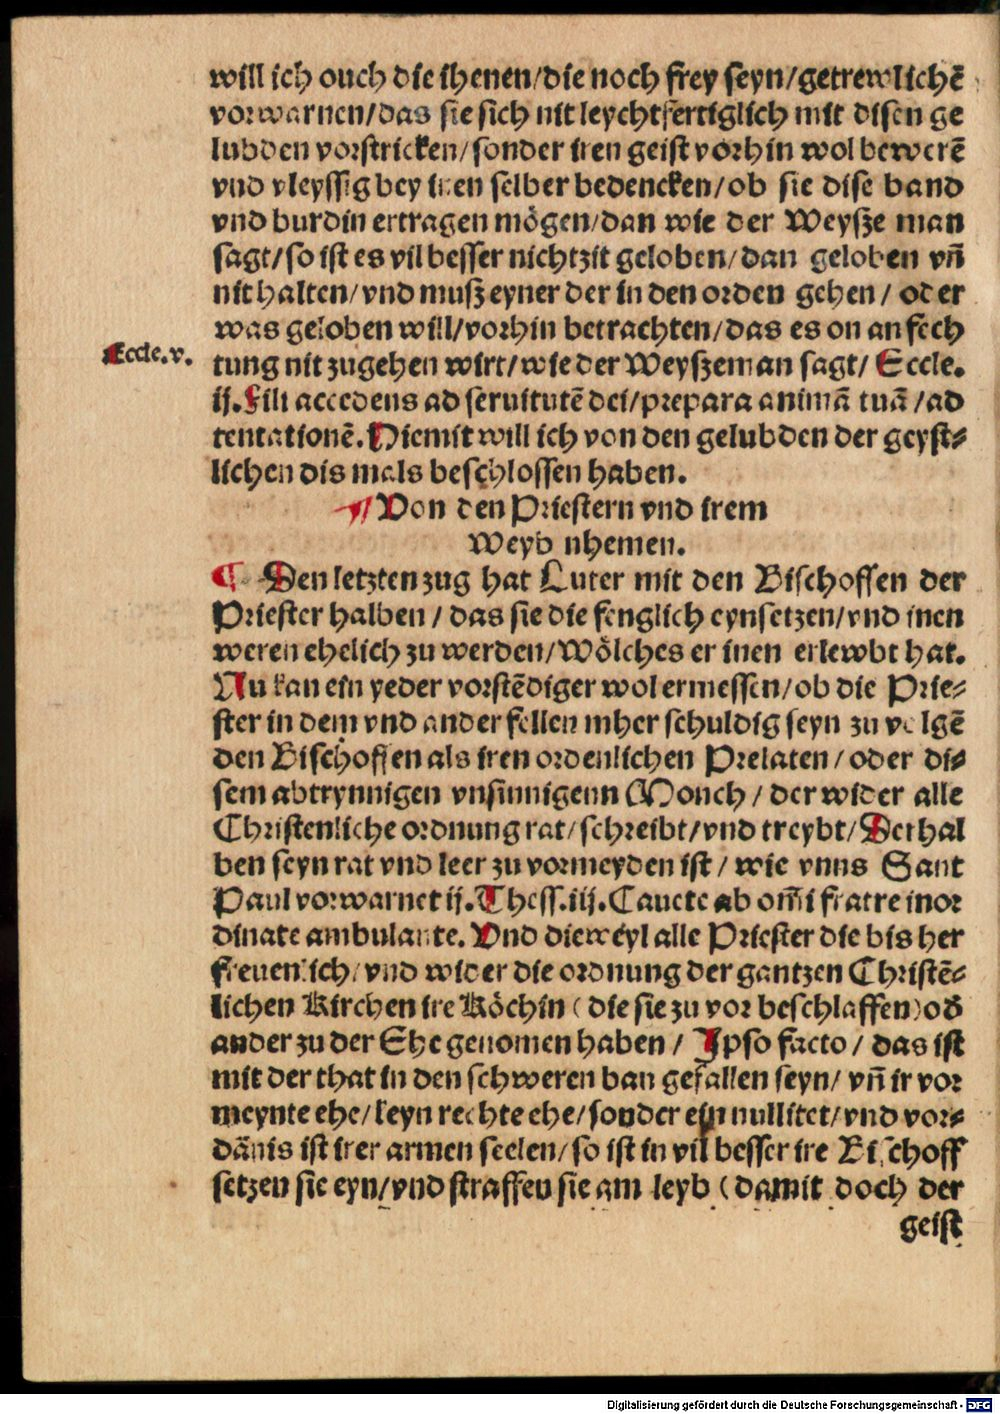 will ich ouch die ihenen/die noch frey seyn/getrewlichē
vorwarnen/das sie sich nit leychtfertiglich mit disen ge
lubden vorstricken/sonder iren geist vorhin wol bewerē
vnd vleyssig bey inen selber bedencken/ob sie dise band
vnd burdin ertragen mögen/dan wie der Weysze man
sagt/so ist es vil besser nichtzit geloben/dan geloben vn̄
nit halten/vnd musz eyner der in den orden gehen/ oder
was geloben will/vorhin betrachten/das es on anfech
Eccle.v.
tung nit zugehen wirt/wie der Weyszeman sagt/ Eccle.
ij.Fili accedens ad seruitutē dei/prepara animā tuā/ad
tentationē.Hiemit will ich von den gelubden der geyst⸗
lichen dis mals beschlossen haben.
Von den Priestern vnd irem
Weyb nhemen.
¶ Den letzten zug hat Luter mit den Bischoffen der
Priester halben/ das sie die fenglich eynsetzen/vnd inen
weren ehelich zu werden/Wölches er inen erlewbt hat.
Nu kan ein yeder vorstēdiger wol ermessen/ob die Prie⸗
ster in dem vnd ander fellen mher schuldig seyn zu volgē
den Bischoffen als iren ordenlichen Prelaten/oder di⸗
sem abtrynnigen vnsinnigenn Monch/ der wider alle
Christenliche ordnung rat/schreibt/vnd treybt/Derhal
ben seyn rat vnd leer zu vormeyden ist/ wie vnns Sant
Paul vorwarnet ij.Thess.iij.Cauete ab om̄i fratre inor
dinate ambulante.Vnd dieweyl alle Priester die bis her
freuenlich/vnd wider die ordnung der gantzen Christē⸗
lichen Kirchen ire Köchin (die sie zu vor beschlaffen) od̄
ander zu der Ehe genomen haben/ Ipso facto/ das ist
mit der that in den schweren ban gefallen seyn/ vn̄ ir vor
meynte ehe/keyn rechte ehe/sonder ein nullitet/vnd vor⸗
dānis ist irer armen seelen/so ist in vil besser ire Bischoff
setzen sie eyn/vnd straffen sie am leyb (damit doch der
geist
Digitalisierung gefördert durch die Deutsche Forschungsgemeinschaft - DFG